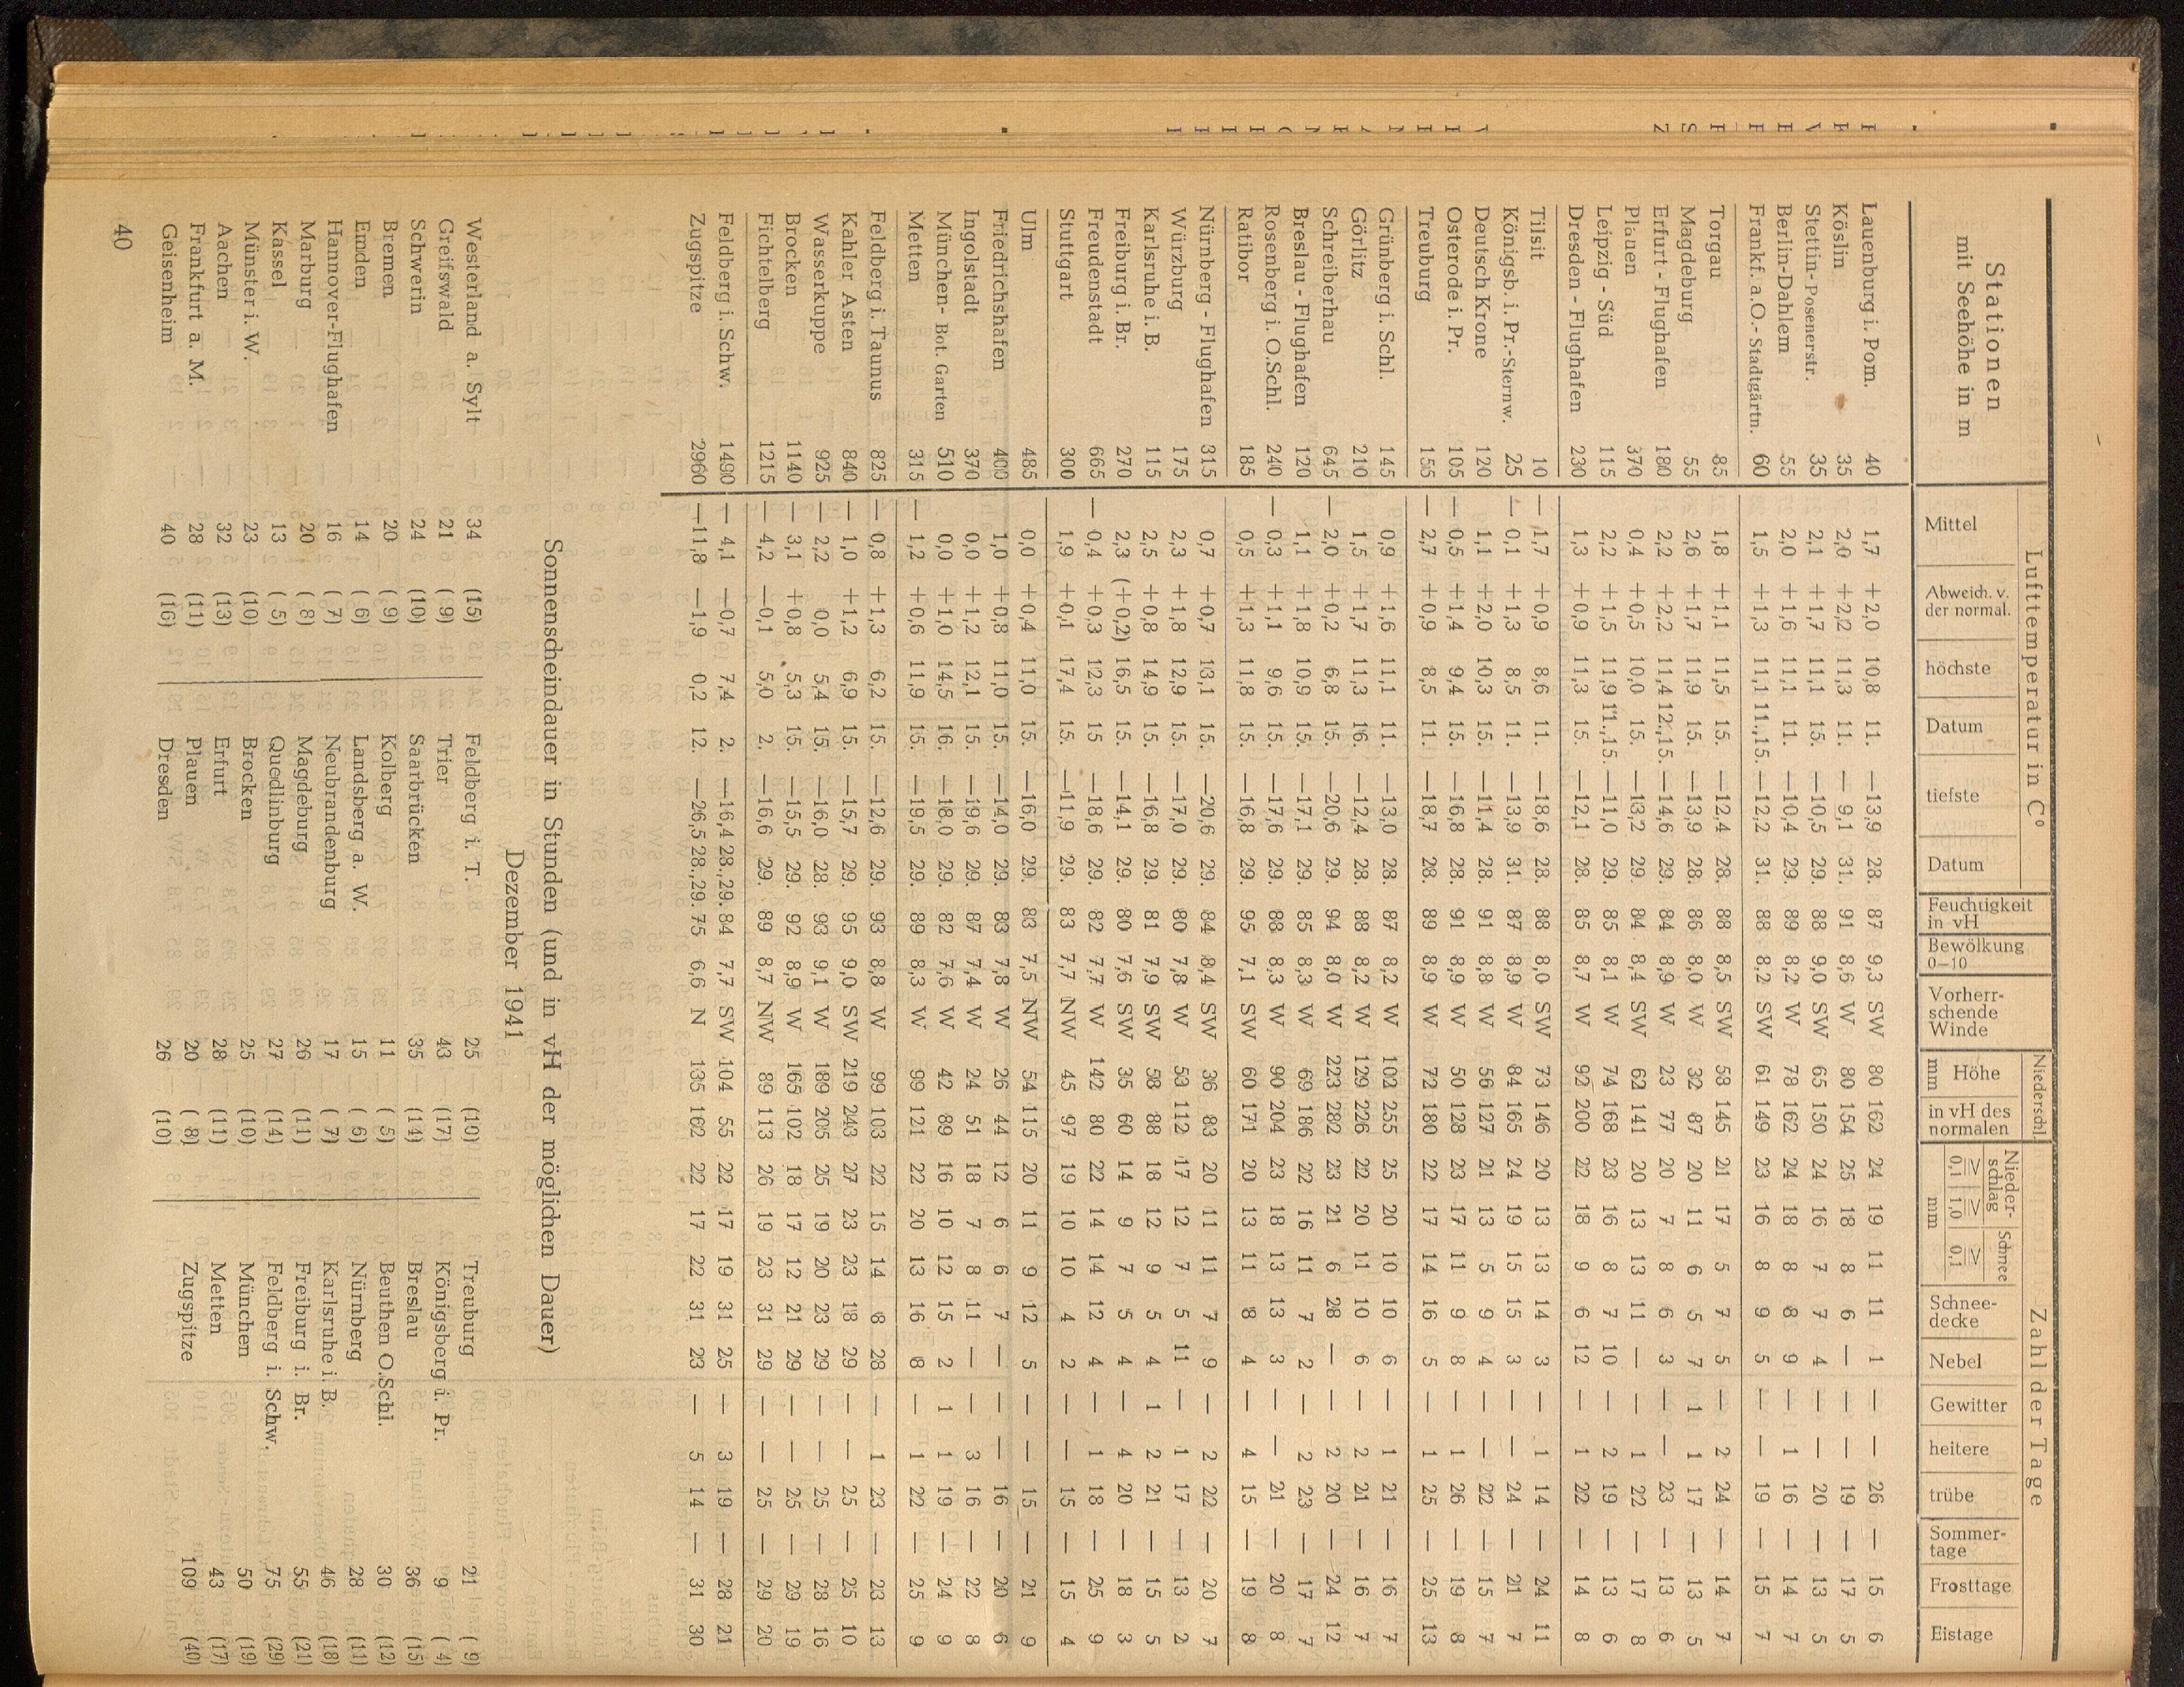 Stationen mit Seehöhe in m
Lufttemperatur in C°
Zahl der Tage
Mittel
Abweich. v. der normal.
höchste
Datum
tiefste
Datum
Feuchtigkeit in vH
Bewölkung 0—10
Vorherrschende Winde
Niederschl.
Höhe mm
in vH des normalen
Niederschlag
≥ 0,1
≥ 1,0
mm
Schnee
≥ 0,1
Schneedecke
Nebel
Gewitter
heitere
trübe
Sommertage
Frosttage
Eistage
Lauenburg i. Pom. 40 1,7 +2,0 10,8 11. —13,9 28. 87 9,3 SW 80 162 24 19 11 11 1 — — 26 — 15 6
Köslin 35 2,0 +2,2 11,3 11. — 9,1 31. 91 8,6 W 80 154 25 18 8 6 — — — 19 — 17 5
Stettin-Posenerstr. 35 2,1 +1,7 11,1 11. —10,5 29. 88 9,0 SW 65 150 24 16 7 7 4 — — 20 — 13 5
Berlin-Dahlem 55 2,0 +1,6 11,1 11. —10,4 29. 89 8,2 W 78 162 24 18 8 8 9 — 1 16 — 14 7
Frankf. a.O.- Stadtgärtn. 60 1,5 +1,3 11,1 11.,15. —12,2 31. 88 8,2 SW 61 149 23 16 8 9 5 — — 19 — 15 7
Torgau 85 1,8 +1,1 11,5 15. —12,4 28. 88 8,5 SW 58 145 21 17 5 7 5 — 2 24 — 14 7
Magdeburg 55 2,6 +1,7 11,9 15. —13,9 28. 86 8,0 W 32 87 20 11 6 5 7 1 1 17 — 13 5
Erfurt - Flughafen 180 2,2 +2,2 11,4 12.,15. —14,6 29. 84 8,9 W 23 77 20 7 8 6 3 — — 23 — 13 6
Plauen 370 0,4 +0,5 10,0 15. —13,2 29. 84 8,4 SW 62 141 20 13 13 11 — — 1 22 — 17 8
Leipzig - Süd 115 2,2 +1,5 11,9 11.,15. —11,0 29. 85 8,1 W 74 168 23 16 8 7 10 — 2 19 — 13 6
Dresden - Flughafen 230 1,3 +0,9 11,3 15. —12,1 28. 85 8,7 W 92 200 22 18 9 6 12 — 1 22 — 14 8
Tilsit 10 —1,7 +0,9 8,6 11. —18,6 28. 88 8,0 SW 73 146 20 13 13 14 3 — 1 14 — 24 11
Königsb. i. Pr.-Sternw. 25 —0,1 +1,3 8,5 11. —13,9 31. 87 8,9 W 84 165 24 19 15 15 3 — — 24 — 21 7
Deutsch Krone 120 1,1 +2,0 10,3 15. —11,4 28. 91 8,8 W 56 127 21 13 5 9 4 — — 22 — 15 7
Osterode i. Pr. 105 —0,5 +1,4 9,4 15. —16,8 28. 91 8,9 W 50 128 23 17 11 9 8 — 1 26 — 19 8
Treuburg 155 —2,7 +0,9 8,5 11. —18,7 28. 89 8,9 W 72 180 22 17 14 16 5 — 1 25 — 25 13
Grünberg i. Schl. 145 0,9 +1,6 11,1 11. —13,0 28. 87 8,2 W 102 255 25 20 10 10 6 — 1 21 — 16 7
Görlitz 210 1,5 +1,7 11,3 16. —12,4 28. 88 8,2 W 129 226 22 20 11 10 6 — 2 21 — 16 7
Schreiberhau 645 —2,0 +0,2 6,8 15. —20,6 29. 94 8,0 W 223 282 23 21 6 28 — — 2 20 — 24 12
Breslau - Flughafen 120 1,1 +1,8 10,9 15. —17,1 29. 85 8,3 W 69 186 22 16 11 7 2 — 2 23 — 17 7
Rosenberg i. O.Schl. 240 —0,3 +1,1 9,6 15. —17,6 29. 88 8,3 W 90 204 23 18 13 13 3 — — 21 — 20 8
Ratibor 185 0,5 +1,3 11,8 15. —16,8 29. 95 7,1 SW 60 171 20 13 11 8 4 — 4 15 — 19 8
Nürnberg - Flughafen 315 0,7 +0,7 13,1 15. —20,6 29. 84 8,4 SW 36 83 20 11 11 7 9 — 2 22 — 20 7
Würzburg 175 2,3 +1,8 12,9 15. —17,0 29. 80 7,8 W 53 112 17 12 7 5 11 — 1 17 — 13 2
Karlsruhe i. B. 115 2,5 +0,8 14,9 15. —16,8 29. 81 7,9 SW 58 88 18 12 9 5 4 1 2 21 — 15 5
Freiburg i. Br. 270 2,3 (+0,2) 16,5 15. —14,1 29. 80 7,6 SW 35 60 14 9 7 5 4 — 4 20 — 18 3
Freudenstadt 665 —0,4 +0,3 12,3 15 —18,6 29. 82 7,7 W 142 80 22 14 14 12 4 — 1 18 — 25 9
Stuttgart 300 1,9 +0,1 17,4 15. —11,9 29. 83 7,7 NW 45 97 19 10 10 4 2 — — 15 — 15 4
Ulm 485 0,0 +0,4 11,0 15. —16,0 29. 83 7,5 NW 54 115 20 11 9 12 5 — — 15 — 21 9
Friedrichshafen 400 1,0 +0,8 11,0 15. —14,0 29. 83 7,8 W 26 44 12 6 6 7 — — — 16 — 20 6
Ingolstadt 370 0,0 +1,2 12,1 15. —19,6 29. 87 7,4 W 24 51 18 7 8 11 — — 3 16 — 22 8
München- Bot. Garten 510 0,0 +1,0 14,5 16. —18,0 29. 82 7,6 W 42 89 16 10 12 15 2 1 1 19 — 24 9
Metten 315 —1,2 +0,6 11,9 15. —19,5 29. 89 8,3 W 99 121 22 20 13 16 8 — 1 22 — 25 9
Feldberg i. Taunus 825 —0,8 +1,3 6,2 15. —12,6 29. 93 8,8 W 99 103 22 15 14 8 28 — 1 23 — 23 13
Kahler Asten 840 —1,0 +1,2 6,9 15. —15,7 29. 95 9,0 SW 219 243 27 23 23 18 29 — — 25 — 25 10
Wasserkuppe 925 —2,2 0,0 5,4 15. —16,0 28. 93 9,1 W 189 205 25 19 20 23 29 — — 25 — 28 16
Brocken 1140 —3,1 +0,8 5,3 15. —15,5 29. 92 8,9 W 165 102 18 17 12 21 29 — — 25 — 29 19
Fichtelberg 1215 —4,2 —0,1 5,0 2. —16,6 29. 89 8,7 NW 89 113 26 19 23 31 29 — — 25 — 29 20
Feldberg i. Schw. 1490 —4,1 —0,7 7,4 2. —16,4 28.,29. 84 7,7 SW 104 55 22 17 19 31 25 — 3 19 — 28 21
Zugspitze 2960 —11,8 —1,9 0,2 12. —26,5 28.,29. 75 6,6 N 135 162 22 17 22 31 23 — 5 14 — 31 30
Sonnenscheindauer in Stunden (und in vH der möglichen Dauer)
Dezember 1941
Westerland a. Sylt 34 (15) Feldberg i. T. 25 (10) Treuburg 21 ( 9)
Greifswald 21 ( 9) Trier 43 (17) Königsberg i. Pr. 9 ( 4)
Schwerin 24 (10) Saarbrücken 35 (14) Breslau 36 (15)
Bremen 20 ( 9) Kolberg 11 ( 5) Beuthen O.Schl. 30 (12)
Emden 14 ( 6) Landsberg a. W. 15 ( 6) Nürnberg 28 (11)
Hannover-Flughafen 16 ( 7) Neubrandenburg 17 ( 7) Karlsruhe i. B. 46 (18)
Marburg 20 ( 8) Magdeburg 26 (11) Freiburg i. Br. 55 (21)
Kassel 13 ( 5) Quedlinburg 27 (14) Feldberg i. Schw. 75 (29)
Münster i. W. 23 (10) Brocken 25 (10) München 50 (19)
Aachen 32 (13) Erfurt 28 (11) Metten 43 (17)
Frankfurt a. M. 28 (11) Plauen 20 ( 8) Zugspitze 109 (40)
Geisenheim 40 (16) Dresden 26 (10)
40